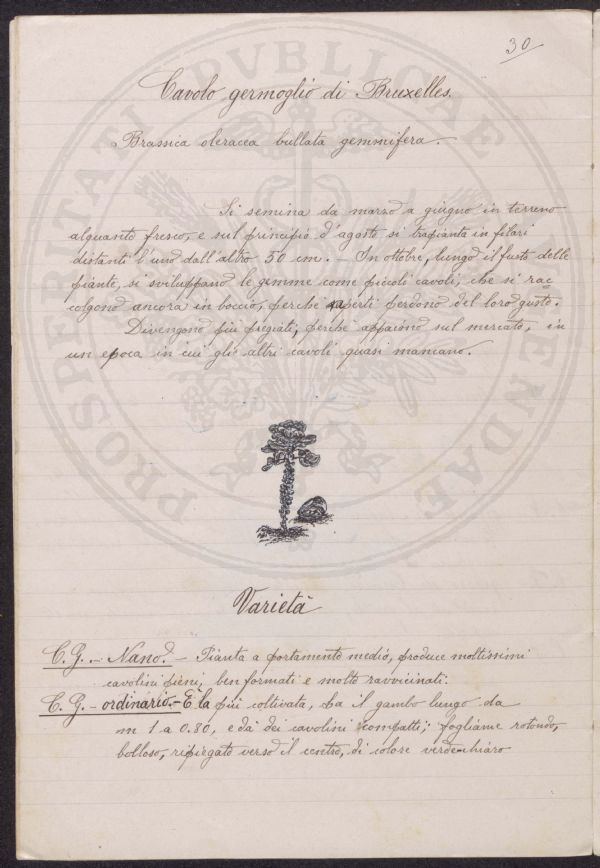 30
Cavolo germoglio di Bruxelles.
Brassica oleracea bullata gemmifera.
Si semina da marzo a giugno in terreno
alquanto fresco, e sul principio d'agosto si trapianta in filari
distanti l'uno dall'altro 50 cm. - In ottobre, lungo il fusto delle
piante, si sviluppano le gemme come piccoli cavoli, che si rac
colgono ancora in boccio, perchè aperti perdono del loro gusto.
Divengono più pregiati, perchè appaiono sul mercato, in
un epoca in cui gli altri cavoli quasi mancano.
Varietà
C. G. - Nano. - Pianta a portamento medio, produce moltissimi
cavolini pieni, ben formati e molto ravvicinati.
C. G. - ordinario. - È la più coltivata, ha il gambo lungo da
m 1 a 0.80, e dà dei cavolini compatti; fogliame rotondo,
bolloso, ripiegato verso il centro, di colore verde-chiaro
PROSPERITATI PVBLICAE AVGENDAE